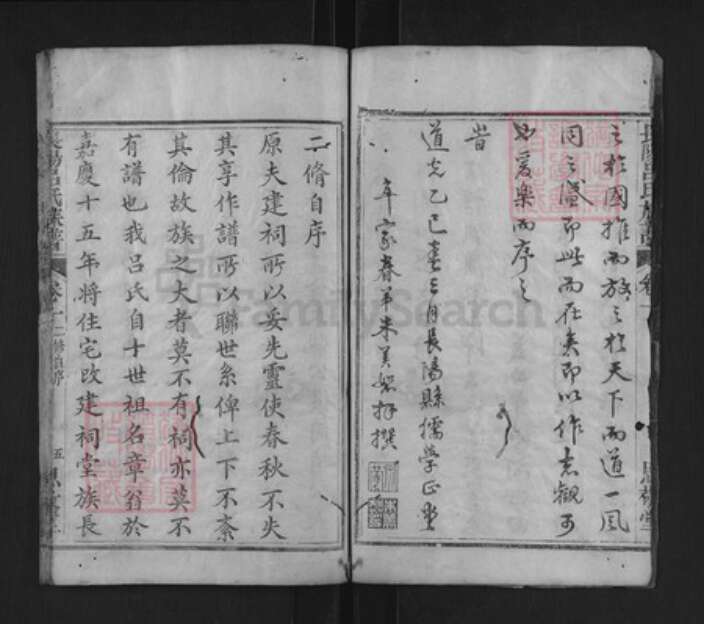 之於國推而放之於天下而道一風
同之盛即此而在矣即以作志觀可
也爰樂而序之
旹
道光乙巳春三月長陽縣儒學正堂
年家眷弟朱美 拜撰
長陽呂氏族譜
卷一
二脩自序
原夫建祠所以妥先靈使春秋不失
其享作譜所以聯世系俾上下不紊
其倫故族之大者莫不有祠亦莫不
有譜也我呂氏自十世祖名章翁於
嘉慶十五年將住宅改建祠堂族長
長陽呂氏族譜
卷一
二修自序
五
FamilySearch